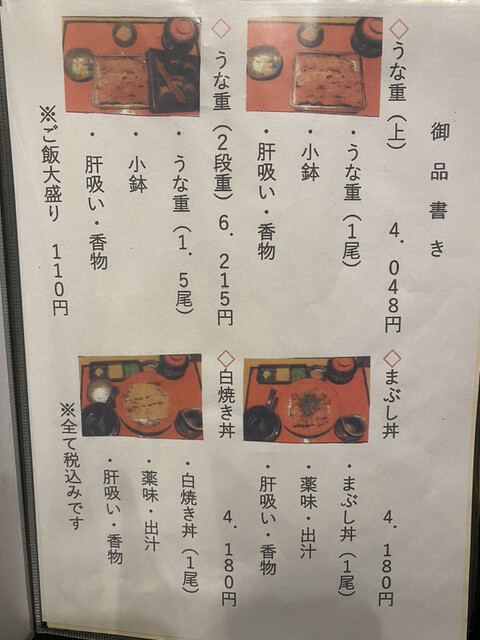 御品書き
◇うな重（上）　４．０４８円
・うな重（１尾）
・小鉢
・肝吸い・香物
◇うな重（２段重）６．２１５円
・うな重（１．５尾）
・小鉢
・肝吸い・香物
※ご飯大盛り　１１０円
◇まぶし丼　４．１８０円
・まぶし丼（１尾）
・薬味・出汁
・肝吸い・香物
◇白焼き丼　４．１８０円
・白焼き丼（１尾）
・薬味・出汁
・肝吸い・香物
※全て税込みです